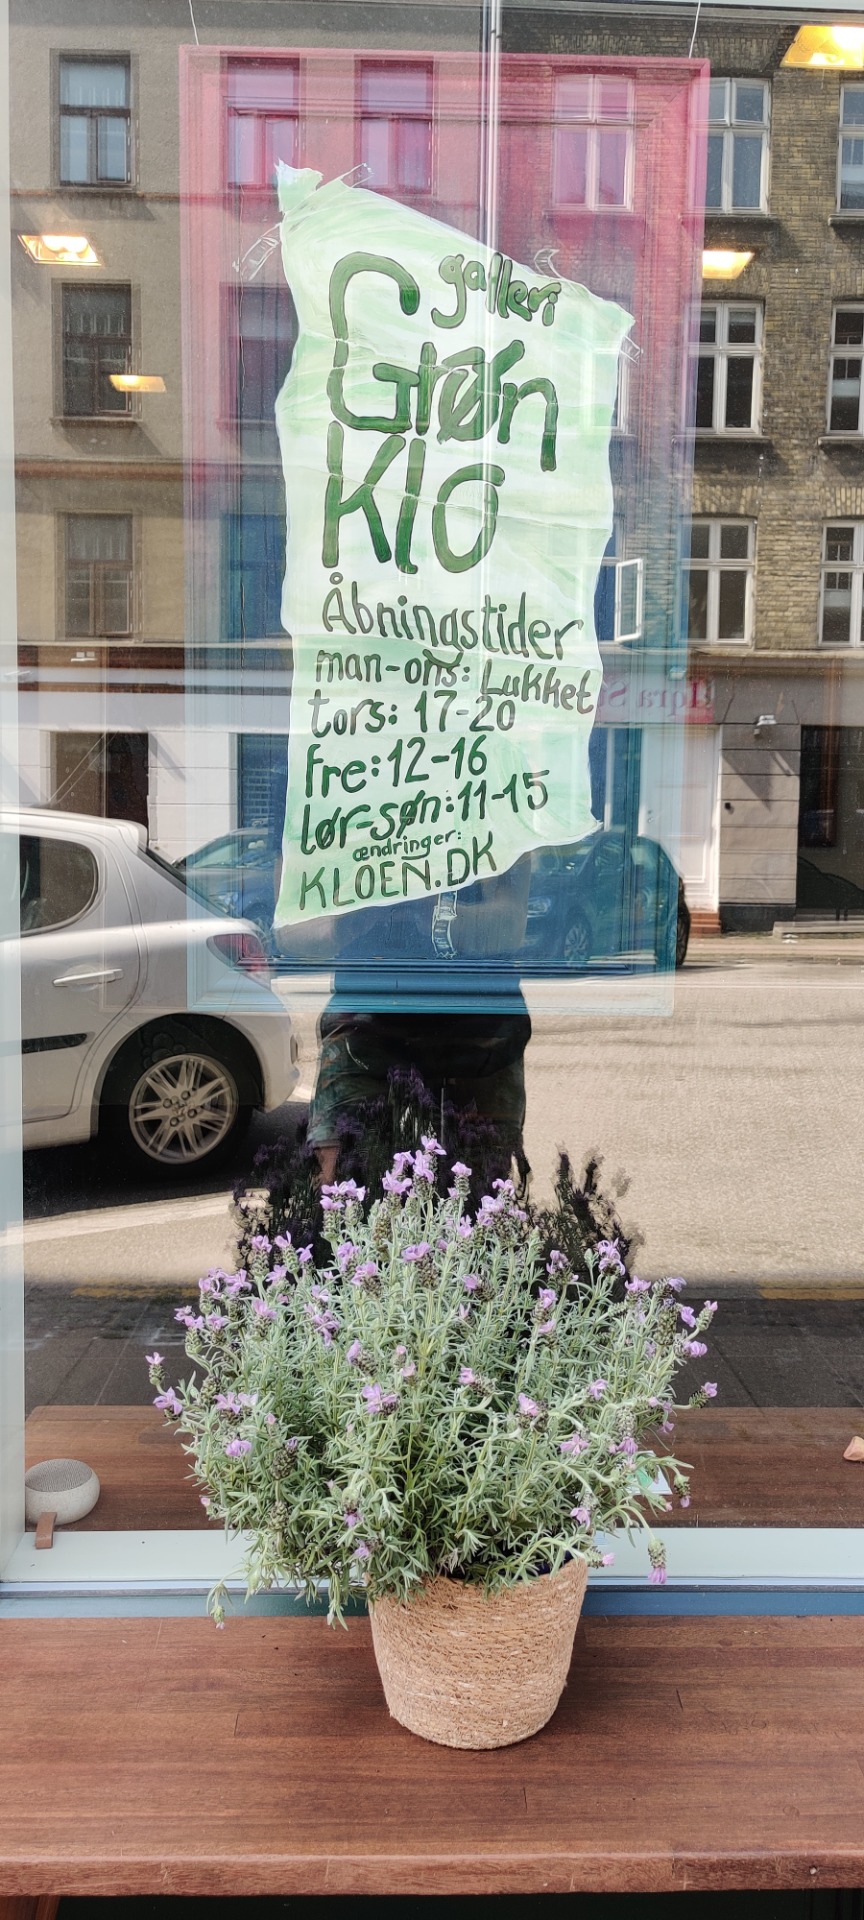 galleri
Grøn
Klo
Åbningstider
man-ons: Lukket
tors: 17-20
fre: 12-16
lør-søn: 11-15
ændringer:
KLOEN.DK